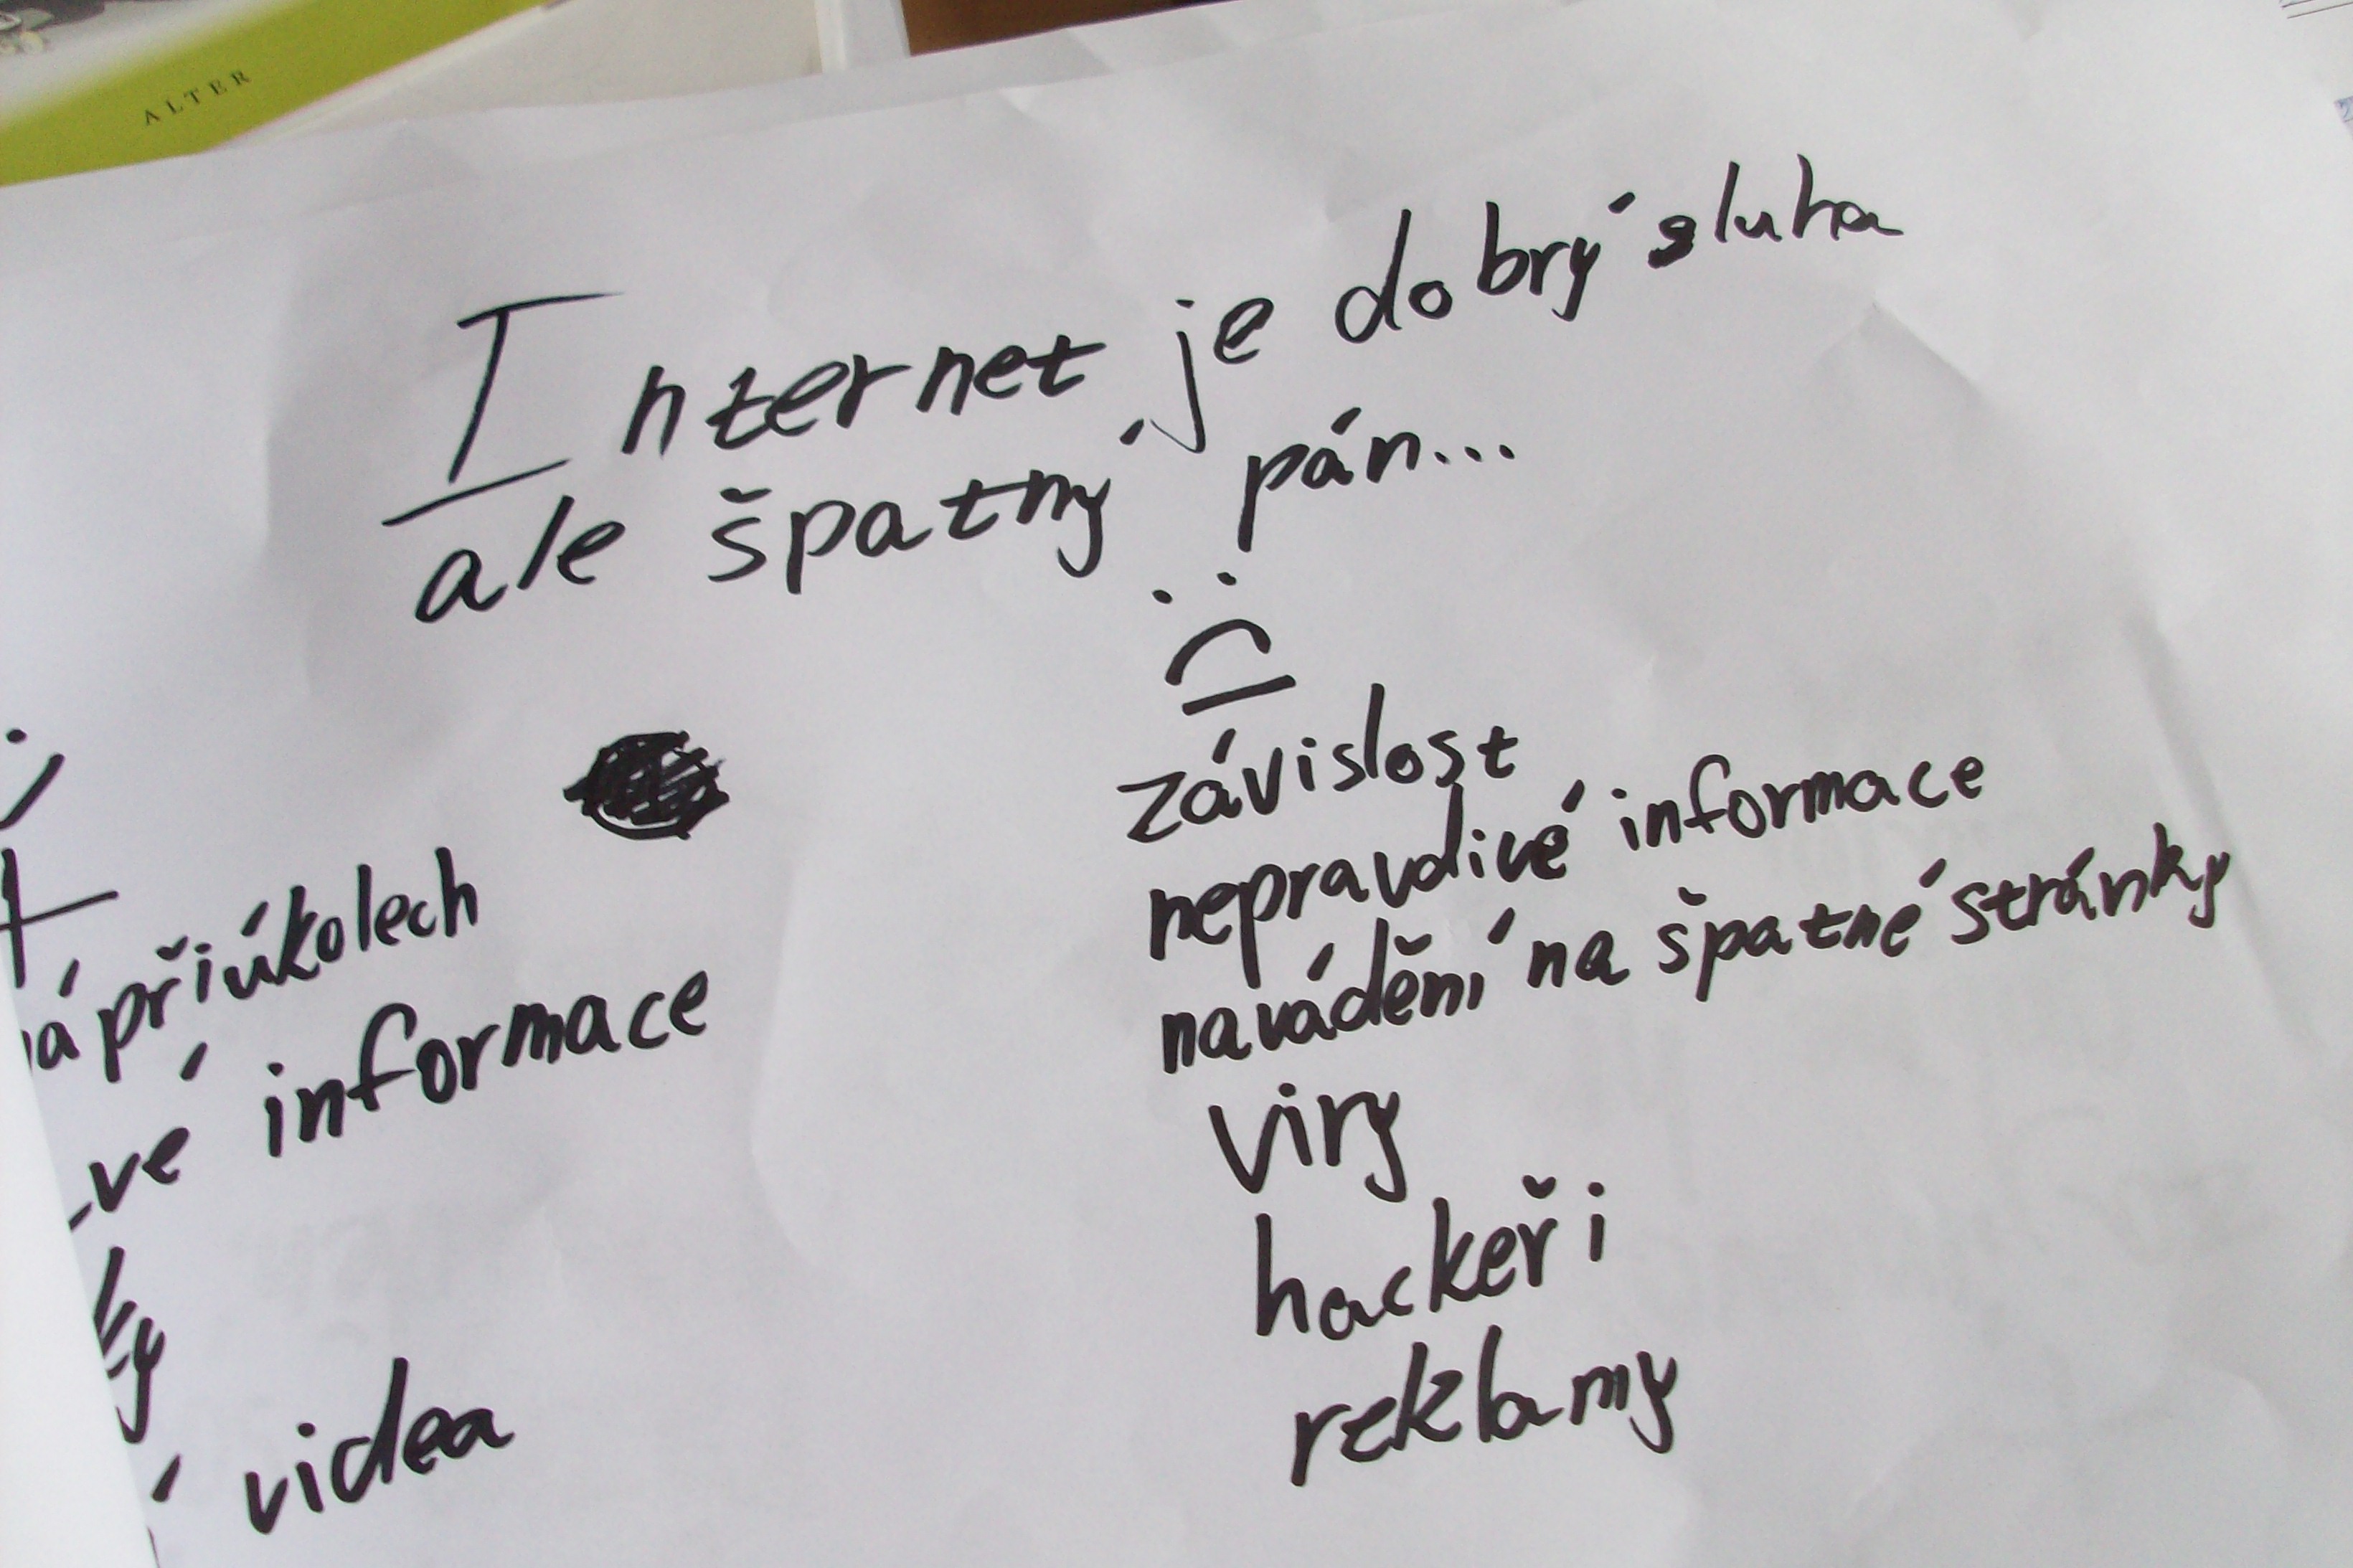 ALTER
Internet je dobrý sluha
ale špatný pán...
+
při úkolech
informace
videa
závislost
nepravdivé informace
navádění na špatné stránky
viry
hackeři
reklamy